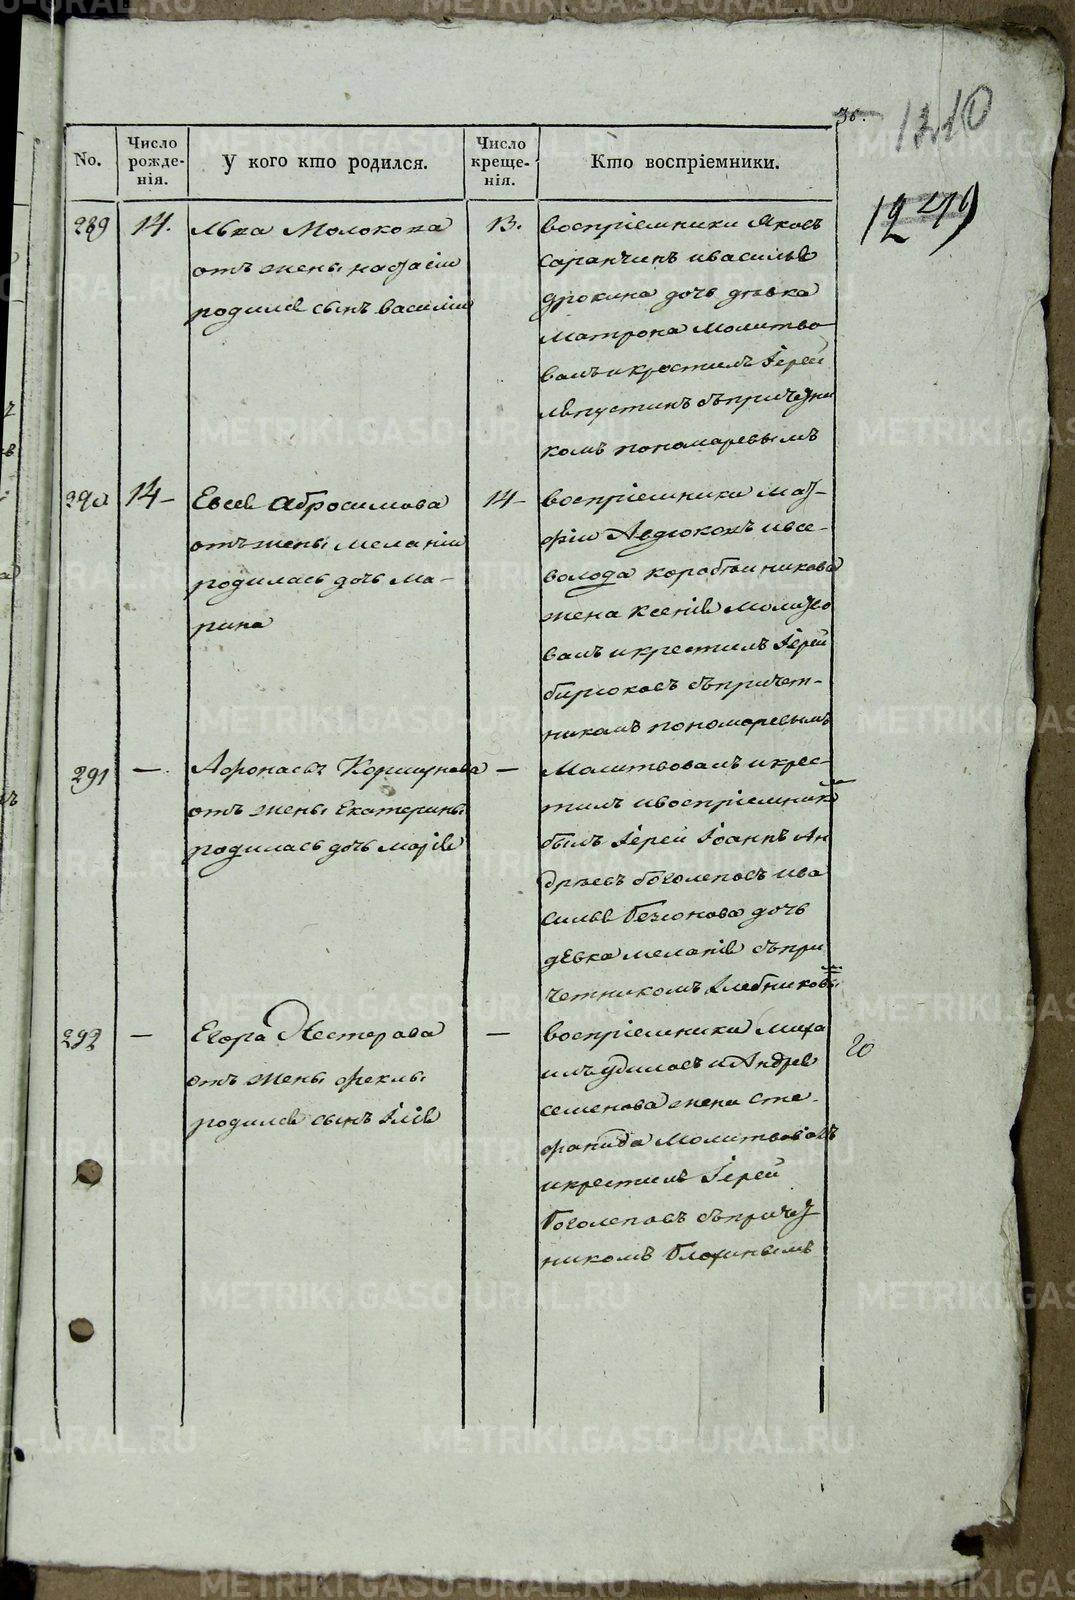 36.
1210
1249
No.
Число рожде-нія.
У кого кто родился.
Число креще-нія.
Кто воспріемники.
289
14.
Лька Молокова
отъ жены настасіи
родился сынъ василии
13.
воспріемники Яковъ
саранчинъ и василья
дрокина дочь девка
Матрона Молитво
валъ и крестилъ Іерей
съ причетни
комъ пономаревымъ
290
14-
Евсея Абросимова
отъ жены мелании
родилась дочь Ма-
рина
14-
воспріемники Мат-
фіи Авдюковъ и все-
волода коробейникова
жена ксенія молитво
валъ и крестилъ Іерей
бирюковъ съ причет-
никомъ пономаревымъ
291
—
Афонасья Коршунова
отъ жены Екатерины
родилась дочь марія
—
Молитвовалъ и крес-
тилъ и воспріемник
былъ Іерей Іоаннъ Ан
дреевъ боголеповъ и ва
силья дочь
девка меланія съ при
четникомъ Хлебниковы
292
—
Егора Нестерова
отъ жены феклы
родился сынъ Ілія
—
воспріемники Миха
илъ и Андрея
семенова жена сте-
фанида Молитвовалъ
и крестилъ Іерей
Боголеповъ съ причет
никомъ
20